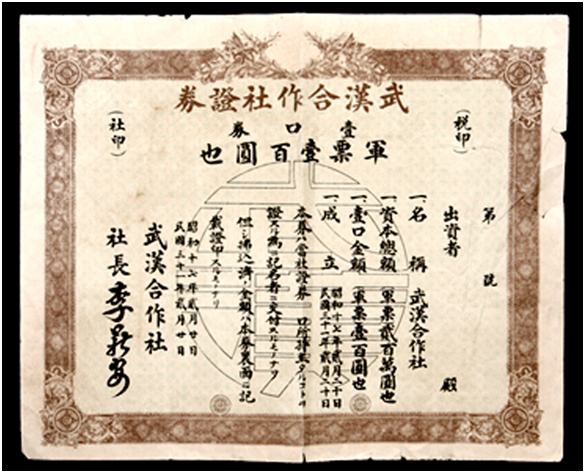 武漢合作社證券
壹口券
軍票壹百圓也
(稅印)
(社印)
第 號
出資者 殿
一、名稱 武漢合作社
一、資本總額 軍票貳百萬圓也
一、壹口金額 軍票壹百圓也
一、成立 昭和十七年貳月二十日
民國三十一年貳月二十日
本券ハ當社證券 口所持主タルコトヲ
證スル為ニ記名者ニ交付スルモノナリ
但シ拂込濟ノ金額ハ本券裏面ニ記
載證印スルモノナリ
昭和十七年貳月廿日
民國三十一年貳月廿日
武漢合作社
社長 李